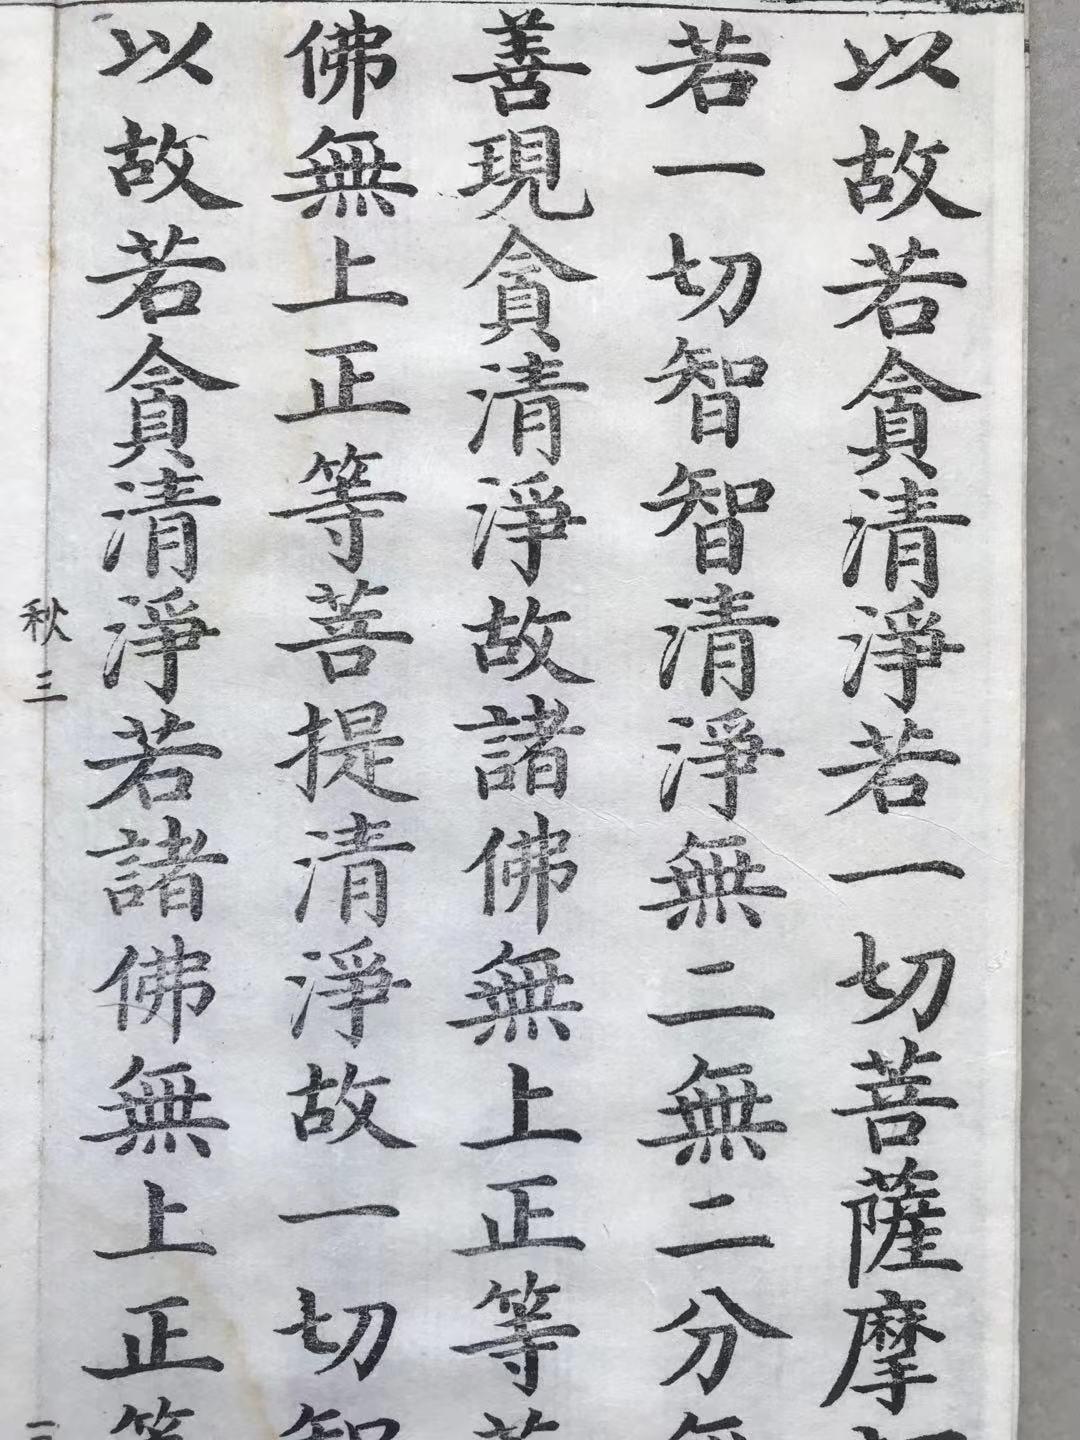 以故若貪清淨若一切菩薩摩
若一切智智清淨無二無二分
善現貪清淨故諸佛無上正等
佛無上正等菩提清淨故一切
以故若貪清淨若諸佛無上正
秋三